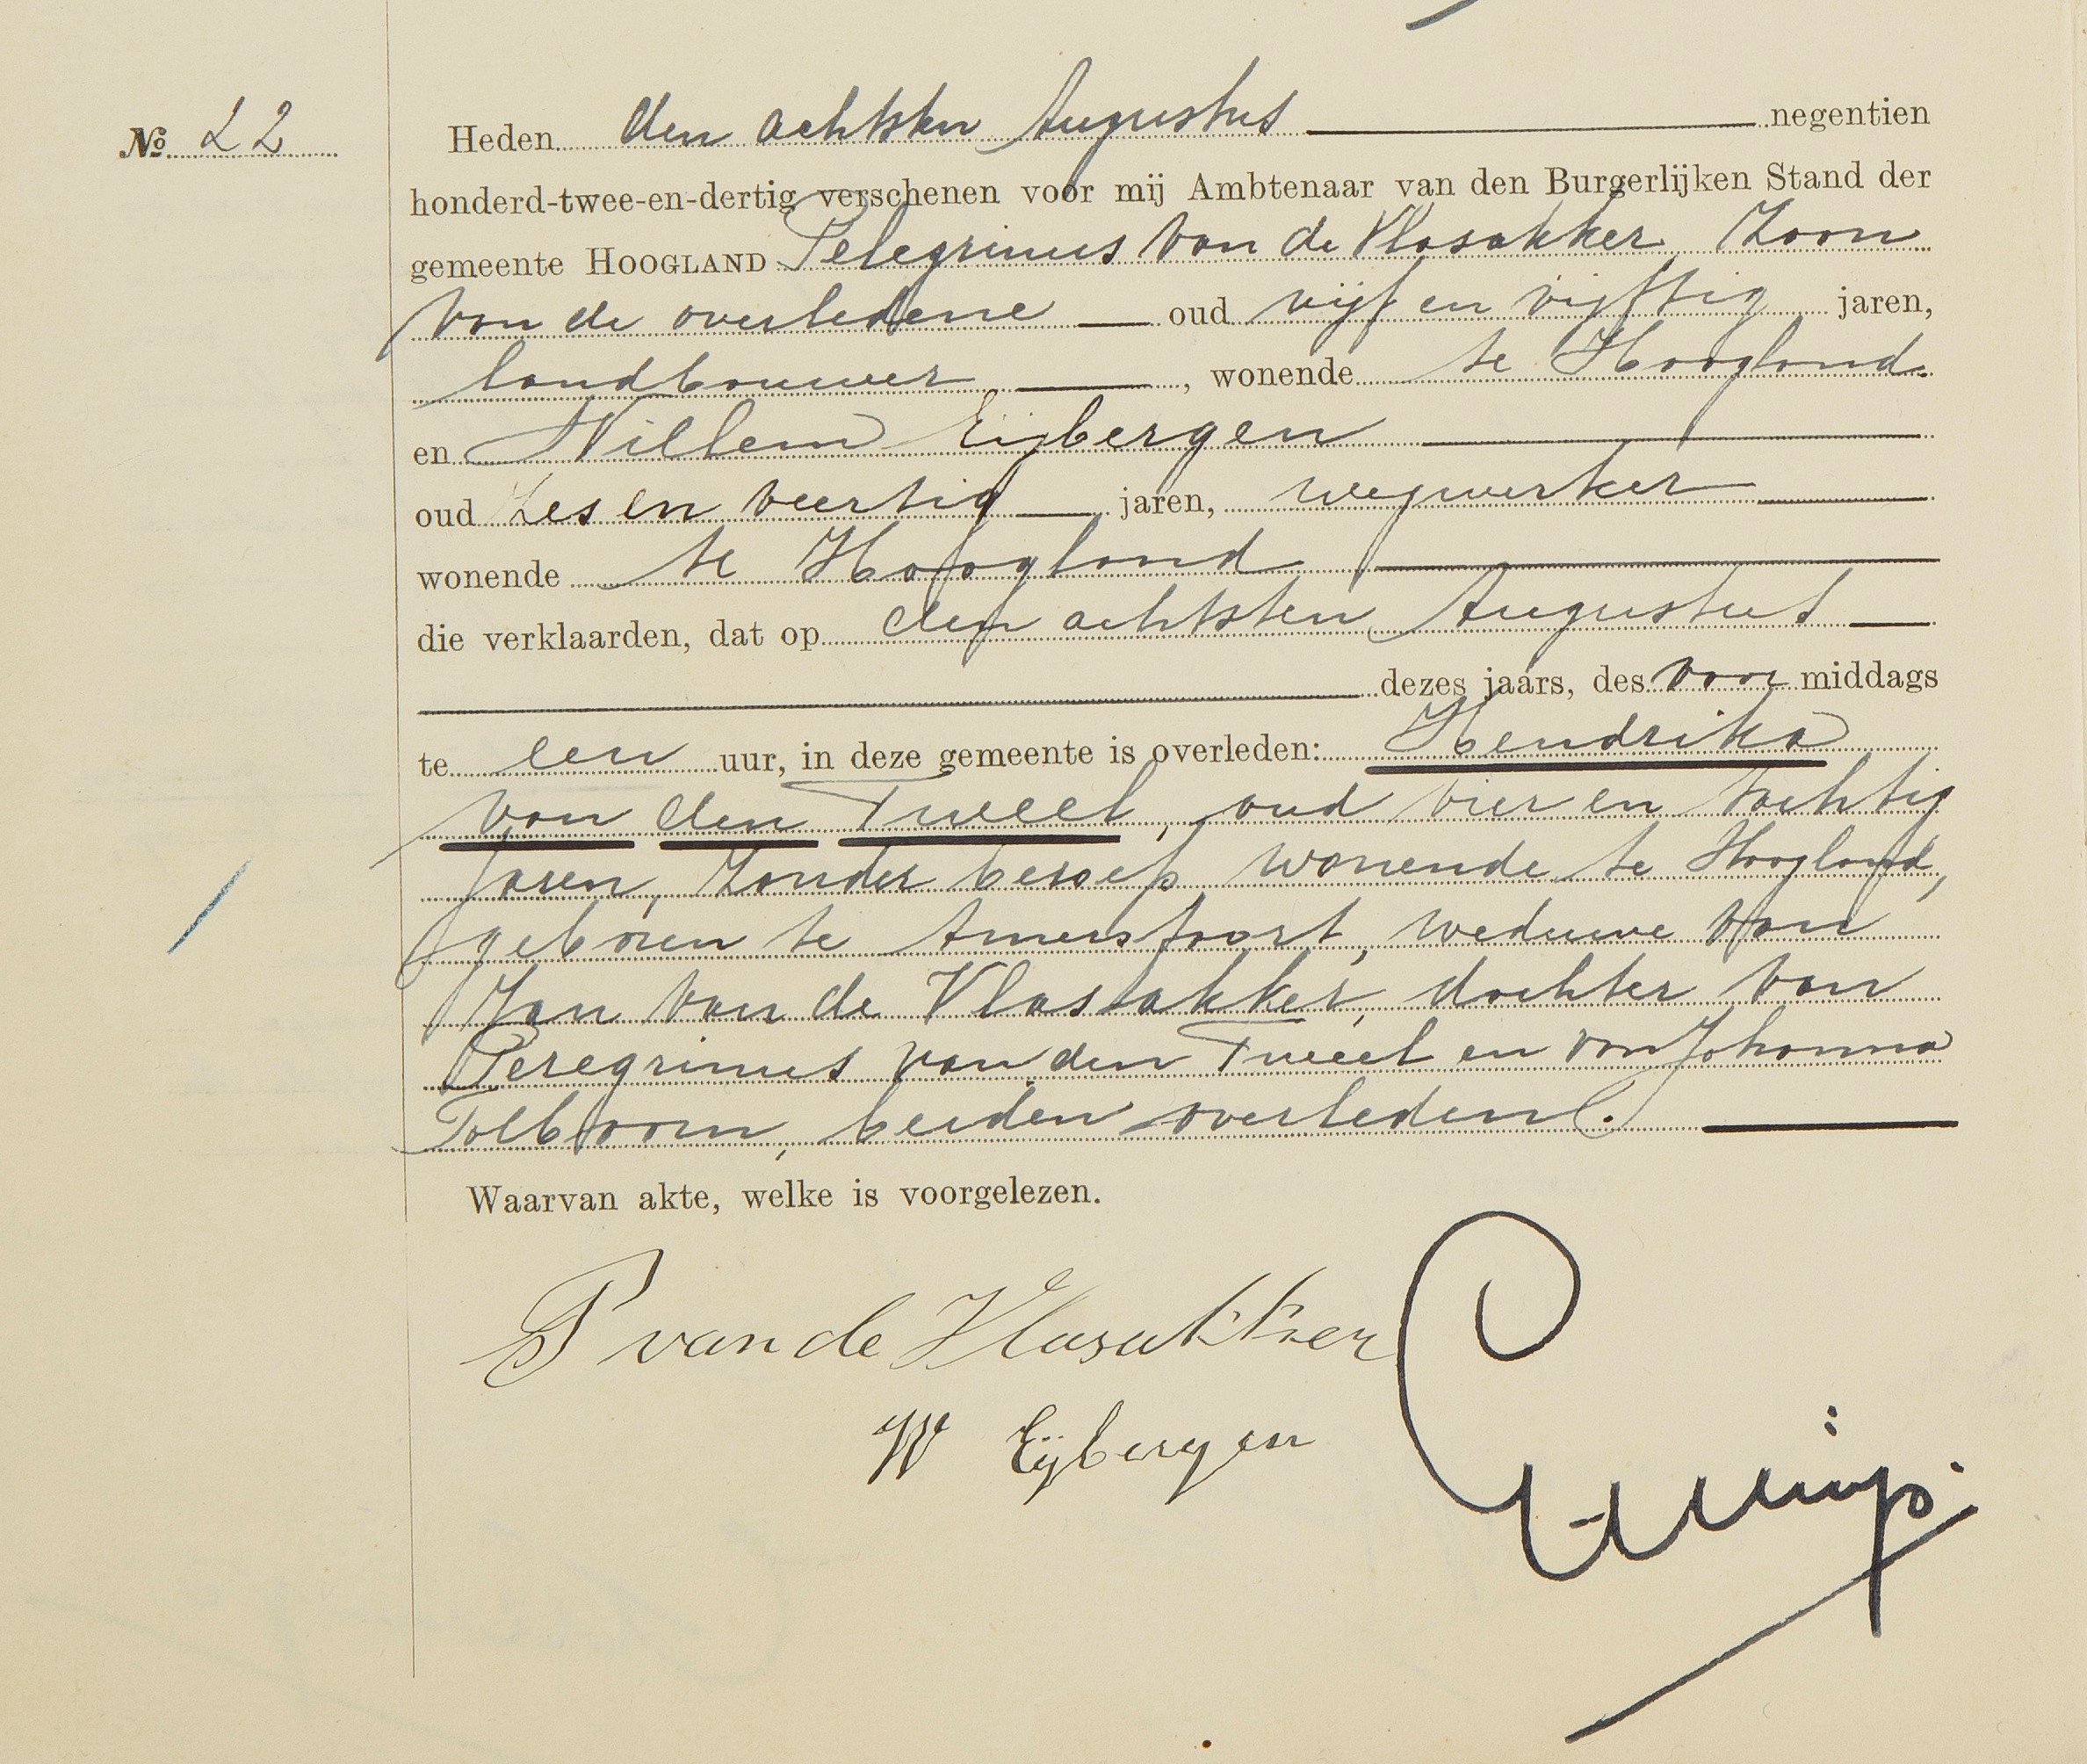 No 22
Heden den achtsten Augustus negentien
honderd-twee-en-dertig verschenen voor mij Ambtenaar van den Burgerlijken Stand der
gemeente HOOGLAND Pelegrinus van de Vlasakker Zoon
van de overledene oud vijf en vijftig jaren,
landbouwer, wonende te Hoogland.
en Willem Eijbergen
oud Zes en veertig jaren, wegwerker
wonende te Hoogland
die verklaarden, dat op den achtsten Augustus
dezes jaars, des voor middags
te een uur, in deze gemeente is overleden: Hendrika
van den Tweel, oud vier en tachtig
jaren, zonder beroep wonende te Hoogland,
geboren te Amersfoort, weduwe van
Jan van de Vlasakker, dochter van
Peregrinus van den Tweel en van Johanna
Tolboom, beiden overleden.
Waarvan akte, welke is voorgelezen.
P van de Vlasakker
W Eijbergen